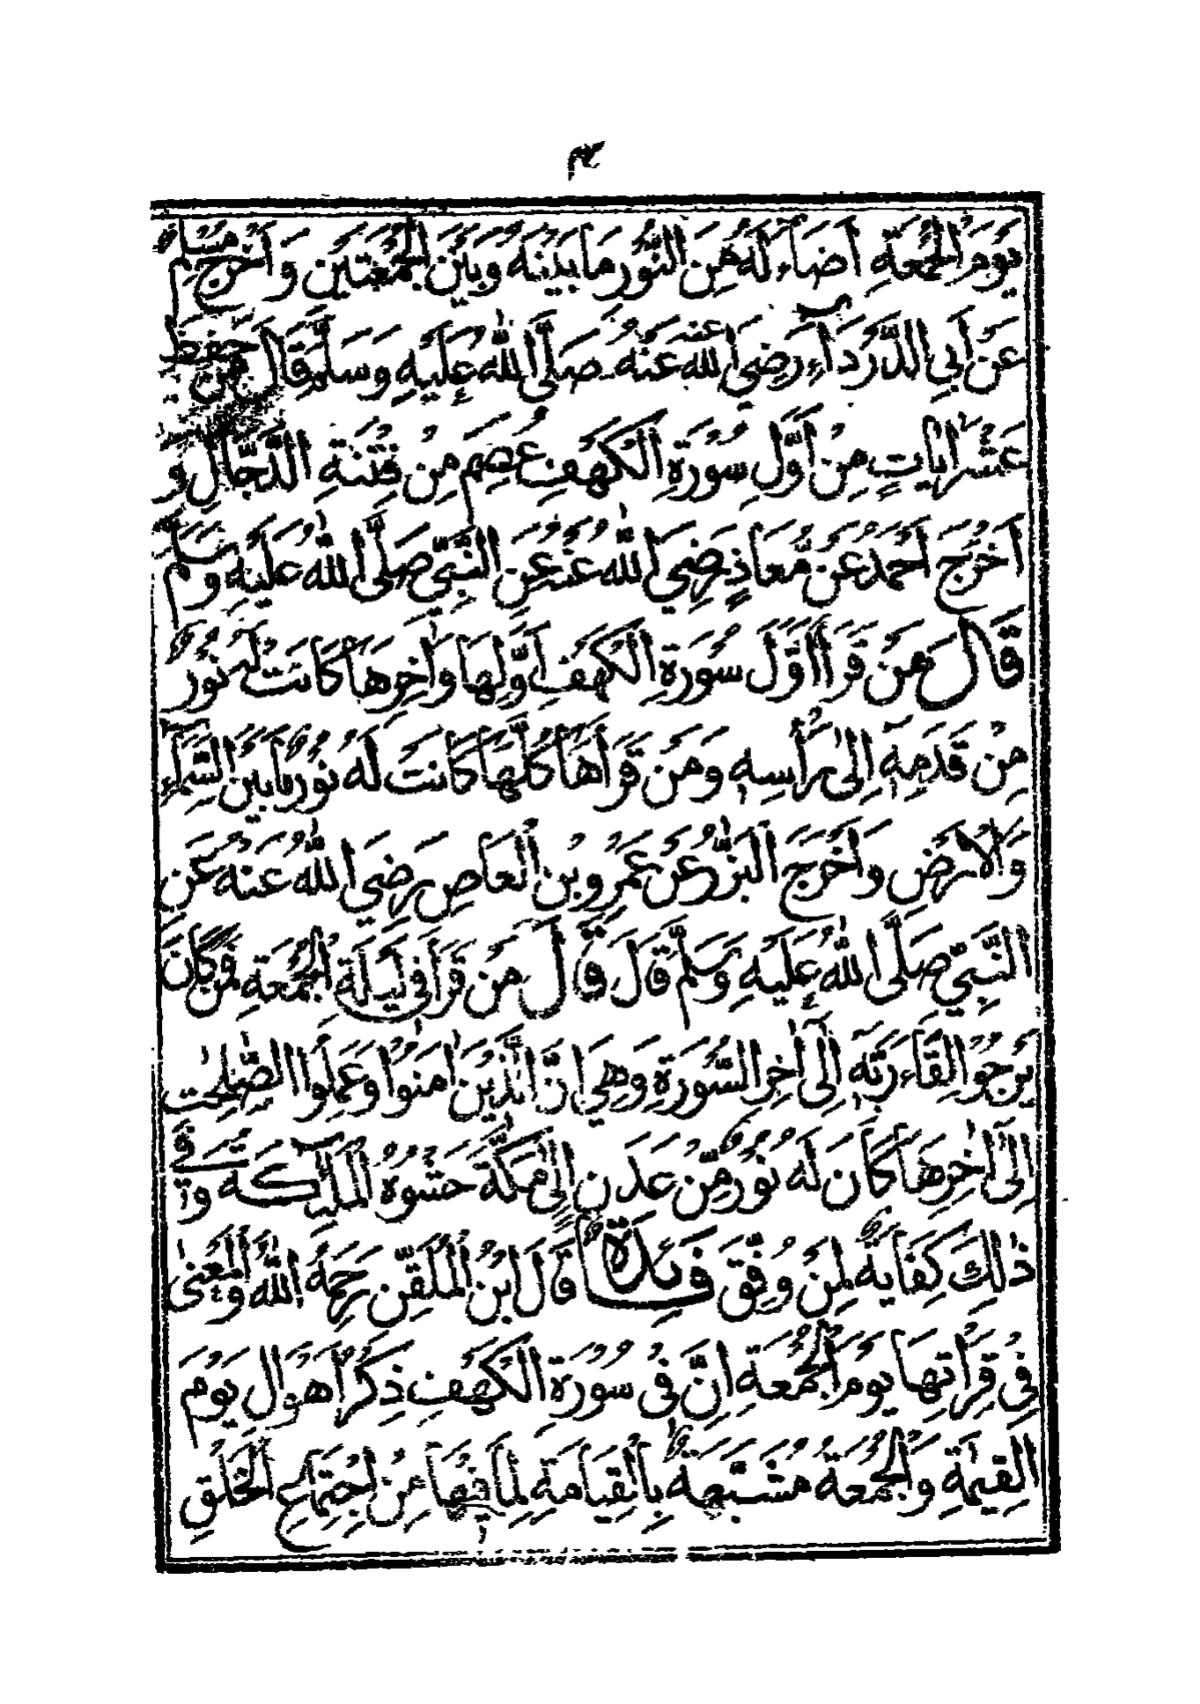 يَوْمَ الْجُمُعَةِ أَضَاءَ لَهُ مِنَ النُّورِ مَا بَيْنَهُ وَبَيْنَ الْجُمُعَتَيْنِ وَأَخْرَجَ مُسْلِمٌ
عَنْ أَبِي الدَّرْدَآءِ رَضِيَ اللهُ عَنْهُ عَنْهُ صَلَّى اللهُ عَلَيْهِ وَسَلَّمَ قَالَ مَنْ حَفِظَ
عَشْرَ اٰيَاتٍ مِنْ أَوَّلِ سُورَةِ الْكَهْفِ عُصِمَ مِنْ فِتْنَةِ الدَّجَّالِ وَ
أَخْرَجَ أَحْمَدُ عَنْ مُّعَاذٍ رَضِيَ اللهُ عَنْهُ عَنِ النَّبِيِّ صَلَّى اللهُ عَلَيْهِ وَسَلَّمَ
قَالَ مَنْ قَرَأَ أَوَّلَ سُورَةِ الْكَهْفِ أَوَّلِهَا وَاٰخِرِهَا كَانَتْ لَهُ نُورٌ
مِنْ قَدَمِهِ إِلٰى رَأْسِهِ وَمَنْ قَرَأَهَا كُلَّهَا كَانَتْ لَهُ نُورٌ مَا بَيْنَ السَّمَاءِ
وَالْأَرْضِ وَأَخْرَجَ الْبَزَّارُ عَنْ عَمْرِو بْنِ الْعَاصِ رَضِيَ اللهُ عَنْهُ عَنِ
النَّبِيِّ صَلَّى اللهُ عَلَيْهِ وَسَلَّمَ قَالَ قَالَ مَنْ قَرَأَ فِي لَيْلَةِ الْجُمُعَةِ فَمَنْ كَانَ
يَرْجُوا لِقَاءَ رَبِّهِ إِلٰى اٰخِرِ السُّورَةِ وَهِيَ إِنَّ الَّذِينَ اٰمَنُوا وَعَمِلُوا الصّٰلِحٰتِ
إِلٰى اٰخِرِهَا كَانَ لَهُ نُورٌ مِّنْ عَدَنِ إِلٰى مَكَّةَ حَشْوُهُ الْمَلٰئِكَةُ وَفِي
ذٰلِكَ كِفَايَةٌ لِمَنْ وُفِّقَ فَائِدَةٌ قَالَ ابْنُ الْمُلَقِّنِ رَحِمَهُ اللهُ وَالْمَعْنٰى
فِي قِرَاءَتِهَا يَوْمَ الْجُمُعَةِ إِنَّ فِي سُورَةِ الْكَهْفِ ذِكْرَ أَهْوَالِ يَوْمِ
الْقِيٰمَةِ وَالْجُمُعَةُ مُشَبَّهَةٌ بِالْقِيَامَةِ لِمَا فِيهَا مِنْ اِجْتِمَاعِ الْخَلْقِ